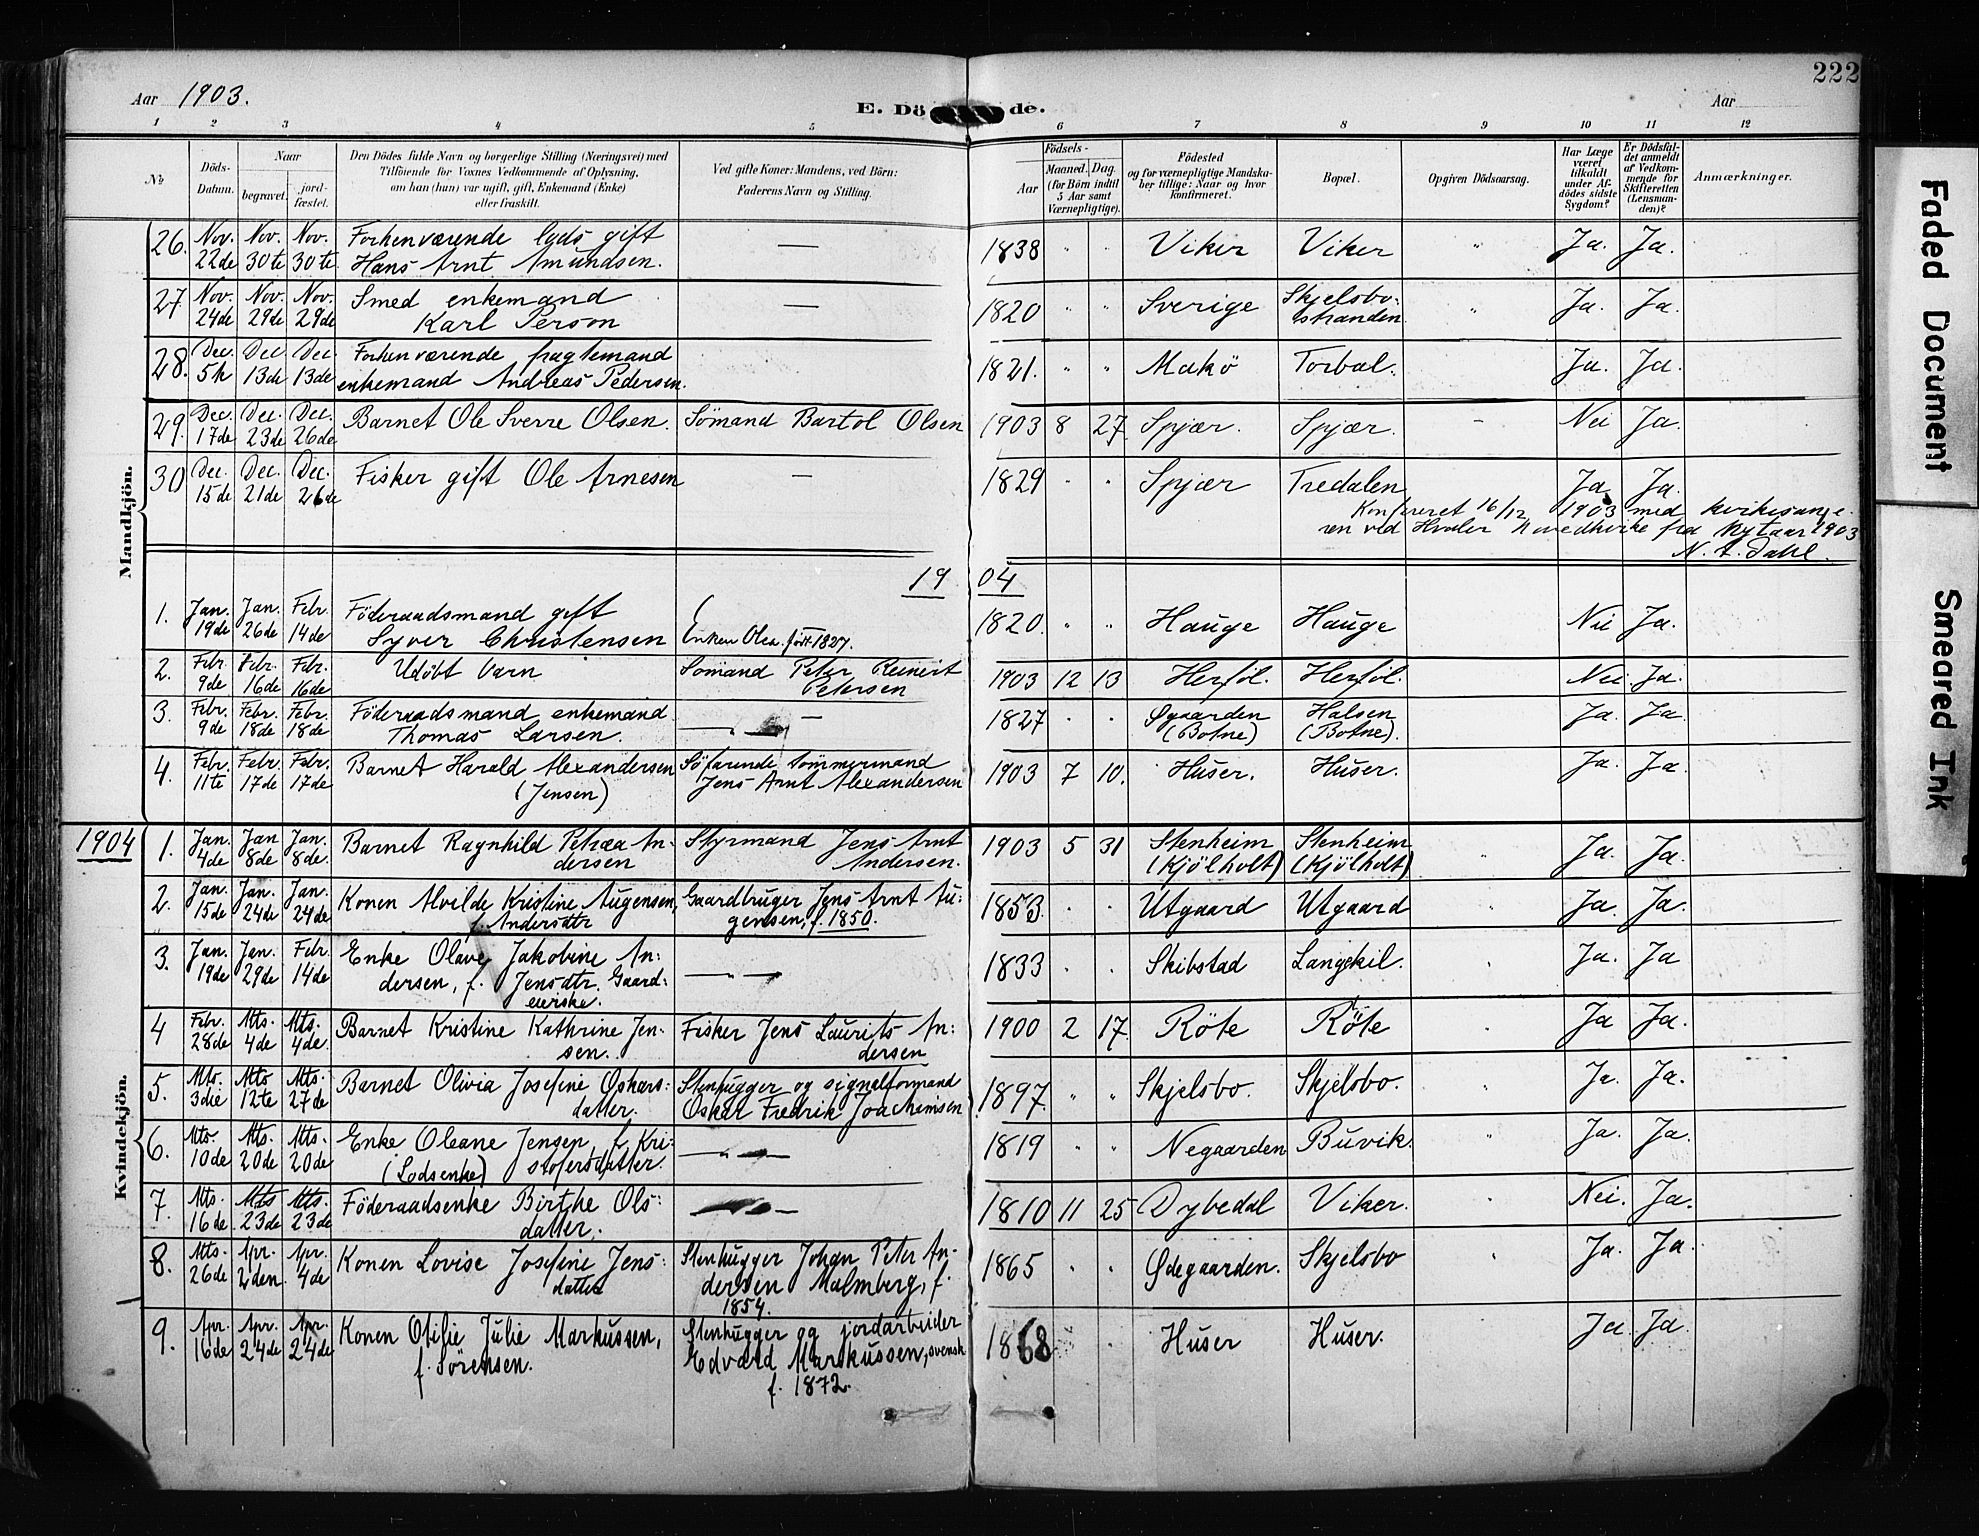 222
Aar 1903.
E. Dö de.
Aar
1 2 3 4 5 6 7 8 9 10 11 12
No
Döds-Datum.
Naar
begravet.
jord-fæstet.
Den Dödes fulde Navn og borgerlige Stilling (Næringsvei) med
Tilföiende for Voxnes Vedkommende af Oplysning,
om han (hun) var ugift, gift, Enkemand (Enke)
eller fraskilt.
Ved gifte Koner: Mandens, ved Börn:
Faderens Navn og Stilling.
Födsels-
Aar
Maaned. Dag.
(for Börn indtil
5 Aar samt
Værnepligtige).
Födested
og for værnepligtige Mandska-
ber tillige: Naar og hvor
konfirmeret.
Bopæl.
Opgiven Dödsaarsag.
Har Læge
været
tilkaldt
under Af-
dödes sidste
Sygdom?
Er Dödsfal-
det anmeldt
af Vedkom-
mende for
Skifteretten
(Lensman-
den)?
Anmærkninger.
Mandkjön.
26. Nov. 22de Nov. 30te Nov. 30te Forhenværende lods gift — 1838 " " Viker Viker " Ja. Ja.
Hans Arnt Amundsen.
27 Nov. 24de Nov. 29de Nov. 29de Smed enkemand — 1820 " " Sverige Skjelsbo- " Ja. Ja.
Karl Person stranden
28. Dec. 5te Dec. 13de Dec. 13de Forhenværende fragtemand 1821. " " Makö Torbal. Ja. Ja.
enkemand Andreas Pedersen.
29. Dec. 17de Dec. 23de Dec. 26de Barnet Ole Sverre Olsen. Sömand Bartol Olsen 1903 8 27 Spjær. Spjær. - Nei Ja.
30 Dec. 15de Dec. 21de Dec. 26de Fisker gift Ole Arnesen — 1829 " " Spjær Tredalen Ja Ja.
Konfereret 16/12 1903 med kirkesange-
ren ved Hvaler hovedkirke fra Nytaar 1903
N. A. Dahl.
19 04
1. Jan. 19de Jan. 26de Febr. 14de Föderaadsmand gift 1820. " " Hauge Hauge Nei Ja.
Syver Christensen Enken Olea. född 1827.
2. Febr. 9de Febr. 16de Febr. 16de Udöbt barn Sömand Peter Reinert 1903 12 13 Herföl. Herföl. Nei. Ja.
Petersen
3. Febr. 9de Febr. 18de Febr. 18de Föderaadsmand enkemand — 1827 " " Øgaarden Halsen Ja. Ja.
Thomas Larsen. (Botne) (Botne).
4. Febr. 11te Febr. 17de Febr. 17de Barnet Harald Alexandersen Söfarende tömmermand 1903 7 10. Huser. Huser. Ja. Ja.
(Jensen) Jens Arnt Alexandersen
1904
Kvindekjön.
1. Jan. 4de Jan 8de Jan. 8de. Barnet Ragnhild Petræa An- Styrmand Jens Arnt 1903 5 31 Stenheim Stenheim " Ja. Ja.
dersen Andersen. (Kjölholt) (Kjölholt)
2. Jan. 15de Jan. 24de Jan. 24de Konen Alvilde Kristine Augensen, Gaardbruger Jens Arnt Au- 1853. " " Utgaard Utgaard Ja. Ja.
f. Andersdtr gensen, f. 1850.
3. Jan. 19de Jan. 29de Febr 14de Enke Olave Jakobine An: —"— 1833 " " Skibstad Langekil. " Ja. Ja
dersen, f. Jensdtr. Gaard-
eierske.
4 Febr. 28de Mts. 4de Mts. 4de. Barnet Kristine Kathrine Jen- Fisker Jens Laurits An: 1900 2 17. Röte Röte " Ja Ja.
sen. dersen
5. Mts. 3die Mts 12te Mts. 27de Barnet Olivia Josefine Oskars: Stenhugger og signalformand 1897. " " Skjelsbo. Skjelsbo. " Ja. Ja.
datter. Oskar Fredrik Joachimsen
6. Mts. 10de Mts. 20de Mts. 20de Enke Oleane Jensen, f. Kri- —"— 1819 " " Negaarden Buvik. " Ja. Ja.
(Lodsenke) stofersdatter.
7. Mts. 16de Mts 23de Mts. 23de Föderaadsenke Birthe Ols: — 1810 11 25 Dybedal Viker. " Nei. Ja.
datter.
8. Mts. 26de Apr. 2den Apr. 4de Konen Lovise Josefine Jens: Stenhugger Johan Peter An- 1865 " " Ødegaarden. Skjelsbo " Ja. Ja.
datter dersen Malmberg, f.
1854.
9. Apr. 16de Apr. 24de Apr. 24de Konen Otilie Julie Markussen, Stenhugger og jordarbeider 1868 " Huser Huser. Ja. Ja.
f. Sörensen. Edvard Markussen, svensk
f. 1872.
Faded Document
Smeared Ink